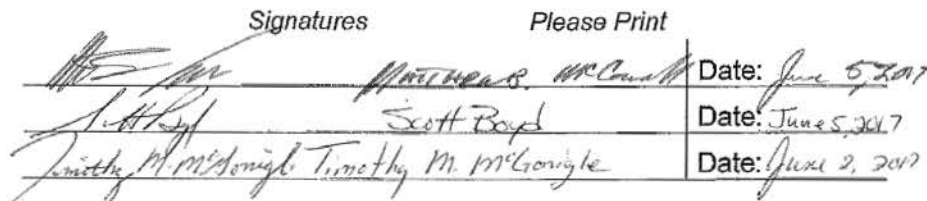 Signatures Please Print
Matthew B. Date: June 5, 2017
Scott Boyd Date: June 5, 2017
Timothy M. McGonigle Timothy M. McGonigle Date: June 2, 2017